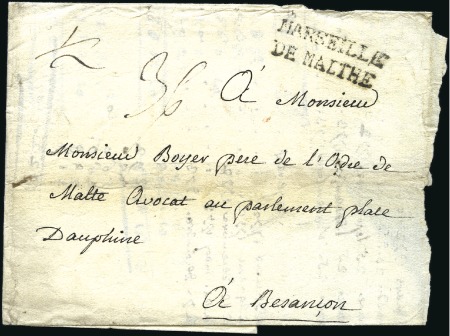 MARSEILLE
DE MALTHE
36 À Monsieur
Monsieur Boyer pere de l'Ordre de
Malte Avocat au parlement place
Dauphine
À Besançon